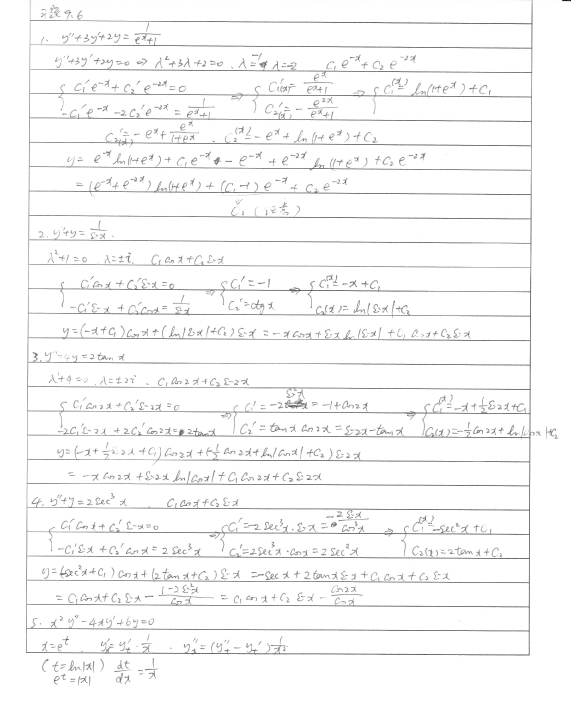 习题 9.6
1. y''+3y'+2y = 1/(e^x+1)
y''+3y'+2y=0 ⇒ λ²+3λ+2=0. λ=-1 λ=-2 C₁e^{-x}+C₂e^{-2x}
{ C₁'e^{-x}+C₂'e^{-2x}=0 ⇒ { C₁'(x)= e^x/(e^x+1) ⇒ { C₁(x)= ln(1+e^x)+C₁
-C₁'e^{-x}-2C₂'e^{-2x} = 1/(e^x+1) C₂'(x)= -e^{2x}/(e^x+1)
C₂'(x)= -e^x+ e^x/(1+e^x) . C₂(x)= -e^x+ln(1+e^x)+C₂
y= e^{-x}ln(1+e^x)+C₁e^{-x} - e^{-x}+e^{-2x}ln(1+e^x)+C₂e^{-2x}
=(e^{-x}+e^{-2x})ln(1+e^x)+(C₁-1)e^{-x}+C₂e^{-2x}
C₁
2. y''+y= 1/sin x.
λ²+1=0 λ=±i. C₁cos x+C₂sin x
{ C₁'cos x+C₂'sin x=0 ⇒ { C₁'=-1 ⇒ { C₁(x)=-x+C₁
-C₁'sin x+C₂'cos x= 1/sin x C₂'=ctg x C₂(x)=ln|sin x|+C₂
y=(-x+C₁)cos x+(ln|sin x|+C₂)sin x=-x cos x+sin x ln|sin x|+C₁cos x+C₂sin x
3. y''+4y=2tan x
λ²+4=0. λ=±2i. C₁cos2x+C₂sin2x
{ C₁'cos2x+C₂'sin2x=0 ⇒ { C₁'=-2sin²x=-1+cos2x ⇒ { C₁(x)=-x+½sin2x+C₁
-2C₁'sin2x+2C₂'cos2x=2tan x C₂'=tan x cos2x=sin2x-tan x C₂(x)=-½cos2x+ln|cos x|+C₂
y=(-x+½sin2x+C₁)cos2x+(-½cos2x+ln|cos x|+C₂)sin2x
=-x cos2x+sin2x ln|cos x|+C₁cos2x+C₂sin2x
4. y''+y=2sec³x C₁cos x+C₂sin x
{ C₁'cos x+C₂'sin x=0 ⇒ { C₁'=-2sec³x·sin x= -2sin x/cos³x ⇒ { C₁(x)=-sec²x+C₁
-C₁'sin x+C₂'cos x=2sec³x C₂'=2sec³x·cos x=2sec²x C₂(x)=2tan x+C₂
y=(-sec²x+C₁)cos x+(2tan x+C₂)sin x=-sec x+2tan x sin x+C₁cos x+C₂sin x
=C₁cos x+C₂sin x- (1-2sin²x)/cos x = C₁cos x+C₂sin x- cos2x/cos x
5. x²y''-4xy'+6y=0
x=e^t. y'ₓ=y'ₜ·1/x . y''ₓ=(y''ₜ-y'ₜ)1/x²
(t=ln|x|) dt/dx=1/x
e^t=|x|